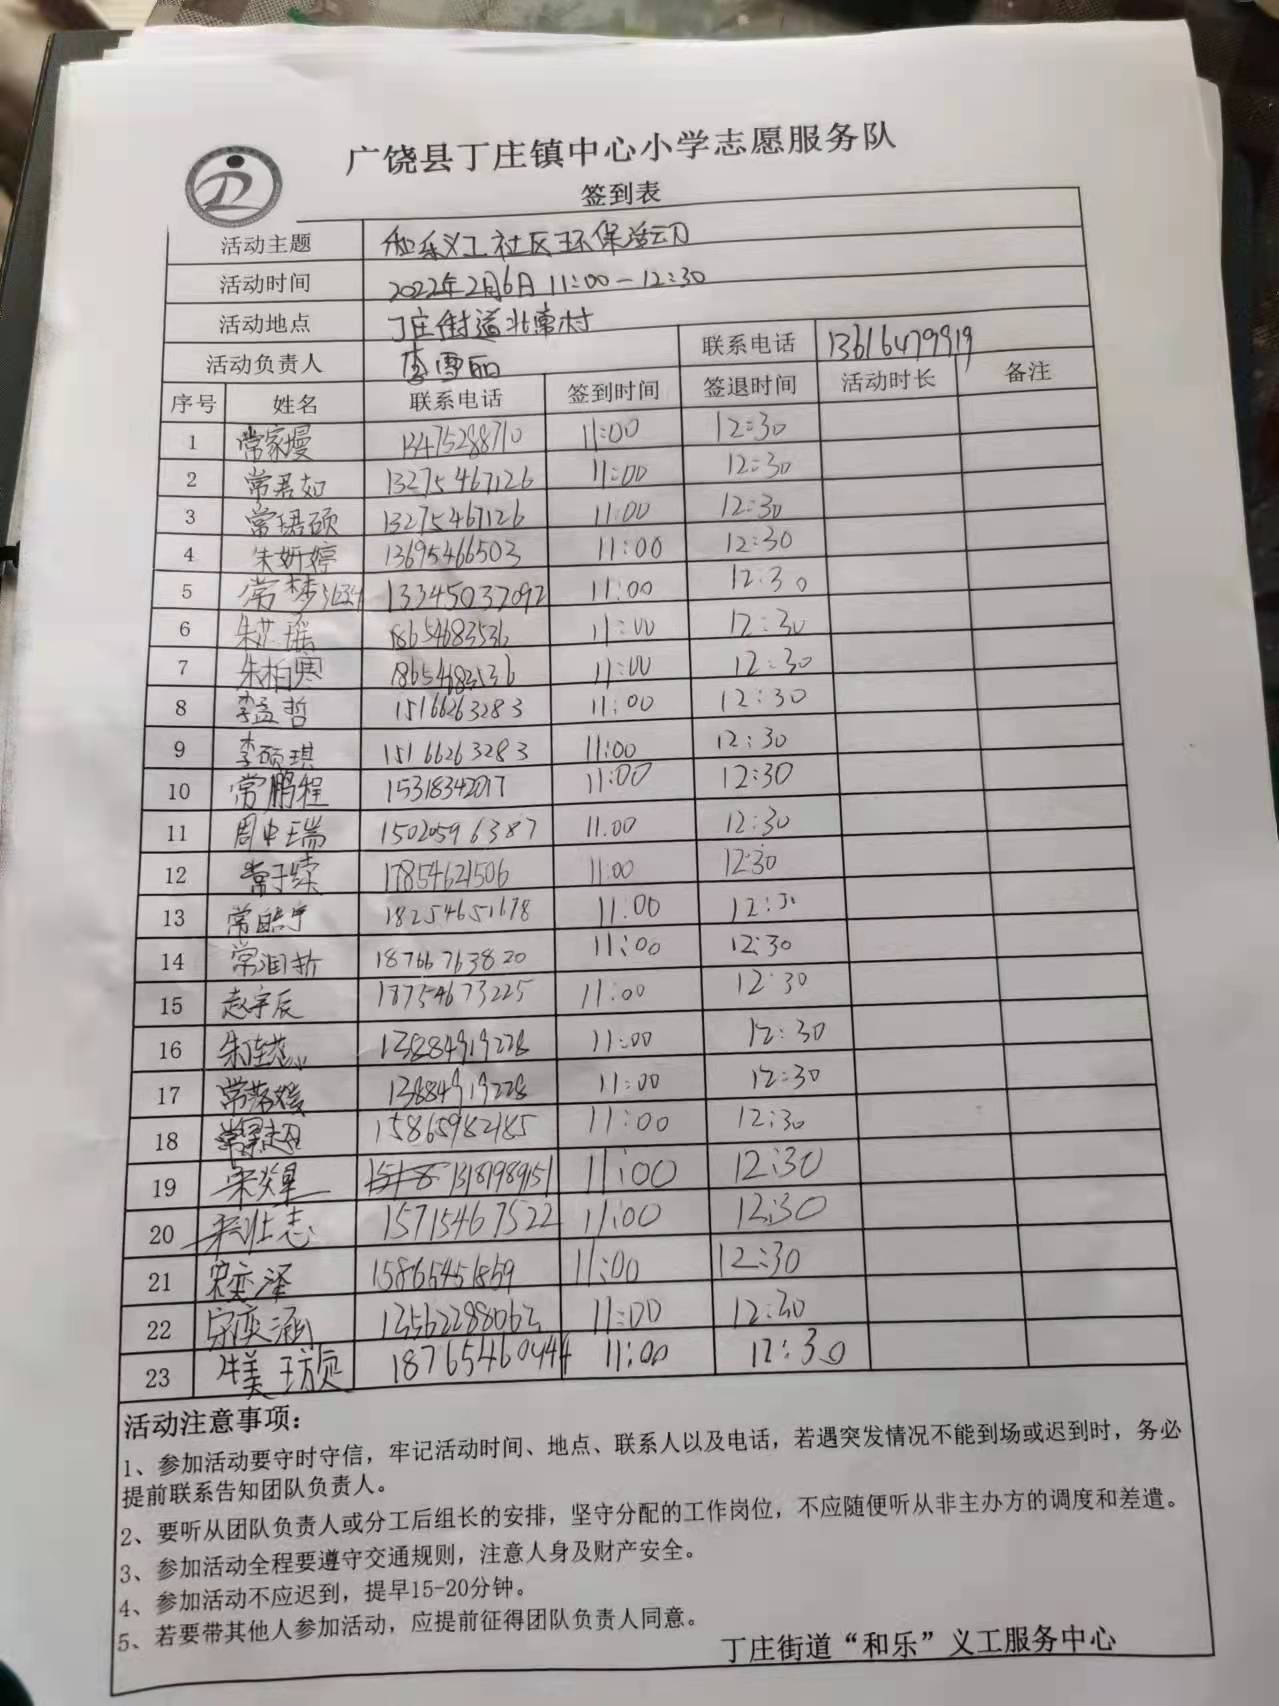 广饶县丁庄镇中心小学志愿服务队
签到表
活动主题 和乐义工社区环保活动
活动时间 2022年2月6日 11:00-12:30
活动地点 丁庄街道北常村
活动负责人 李雪丽 联系电话 13616479919
序号 姓名 联系电话 签到时间 签退时间 活动时长 备注
1 常家墁 13475288710 11:00 12:30
2 常君如 13275467126 11:00 12:30
3 常珺硕 13275467126 11:00 12:30
4 朱妍婷 13695466503 11:00 12:30
5 常梦 13345037092 11:00 12:30
6 朱芯瑶 18654683536 11:00 12:30
7 朱柏寒 18654683536 11:00 12:30
8 李孟哲 15166263283 11:00 12:30
9 李硕琪 15166263283 11:00 12:30
10 常鹏程 15318342017 11:00 12:30
11 周中瑞 15020596387 11.00 12:30
12 常于续 17854621506 11:00 12:30
13 常皓宇 18254651678 11:00 12:30
14 常润哲 18766763820 11:00 12:30
15 赵宇辰 18754673225 11:00 12:30
16 13884919228 11:00 12:30
17 常落媛 13884919228 11:00 12:30
18 15865982185 11:00 12:30
19 宋奕 13181989151 11:00 12:30
20 宋壮志 15715467522 11:00 12:30
21 宋奕泽 15865451869 11:00 12:30
22 宗奕涵 13562288063 11:00 12:30
23 牛美 18765460444 11:00 12:30
活动注意事项：
1、参加活动要守时守信，牢记活动时间、地点、联系人以及电话，若遇突发情况不能到场或迟到时，务必
提前联系告知团队负责人。
2、要听从团队负责人或分工后组长的安排，坚守分配的工作岗位，不应随便听从非主办方的调度和差遣。
3、参加活动全程要遵守交通规则，注意人身及财产安全。
4、参加活动不应迟到，提早15-20分钟。
5、若要带其他人参加活动，应提前征得团队负责人同意。
丁庄街道“和乐”义工服务中心